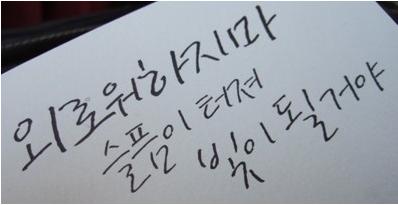 외로워하지마
슬픔이 터져
빛이 될거야